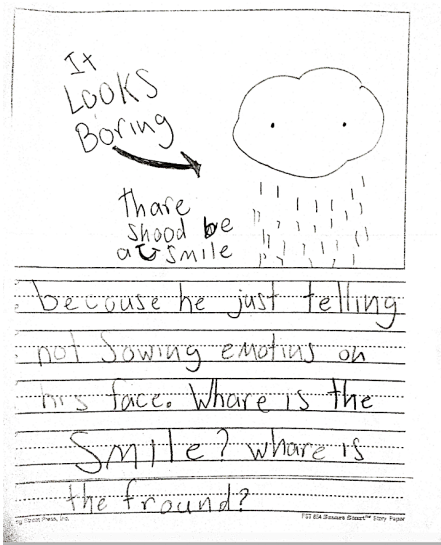 It
LOOKS
Boring
thare
shood be
a smile
because he just telling
not Sowing emotins on
his face. Whare is the
Smile? whare is
the fround?
Story Paper